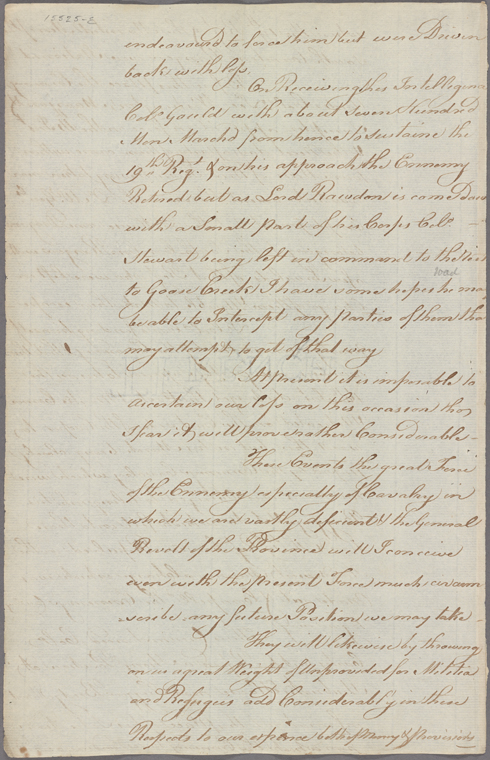 15525-E
endeavourd to force him but were Driven
back with loss.
On Receiving this Intelligence
Colo. Gould with about Seven Hundred
Men Marchd from hence to sustaine the
19th Regt. & on his approach the Ennemy
Retired but as Lord Rawdon is come Down
with a Small part of his Corps Colo.
Stewart being left in command to the
road
to Goose Creek I have some hopes he may
be able to Intercept any parties of them that
may attempt to get of that way
At present it is imposible to
ascertain our loss on this occasion tho
I fear it will prove rather Considerable -
These Events the great Force
of the Ennemy especially of Cavalry in
which we are vastly deficient & the General
Revolt of the Province will I conceive
even with the present Force much circum
scribe any future Position we may take -
They will likewise by throwing
on us a great Weight of Unprovided for Militia
and Refugees add Considerably in these
Respects to our expence both of Money & Provisions